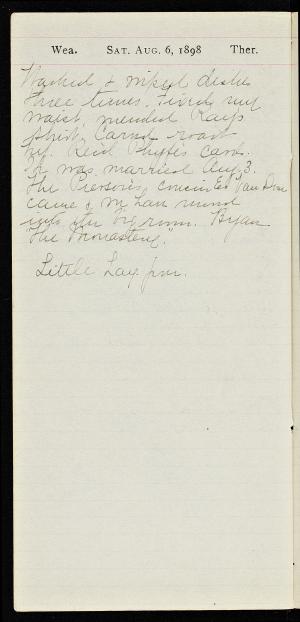 Wea. Sat. Aug. 6, 1898 Ther.
Washed & wiped dishes
three times. Fixed my
waist, mended Ray's
shirt, Carved roast
Rec'd cards.
was married Aug 3.
The Piersons, Van
came & moved
into the big room. Began
"The Monastery."
Little Lazy pm.